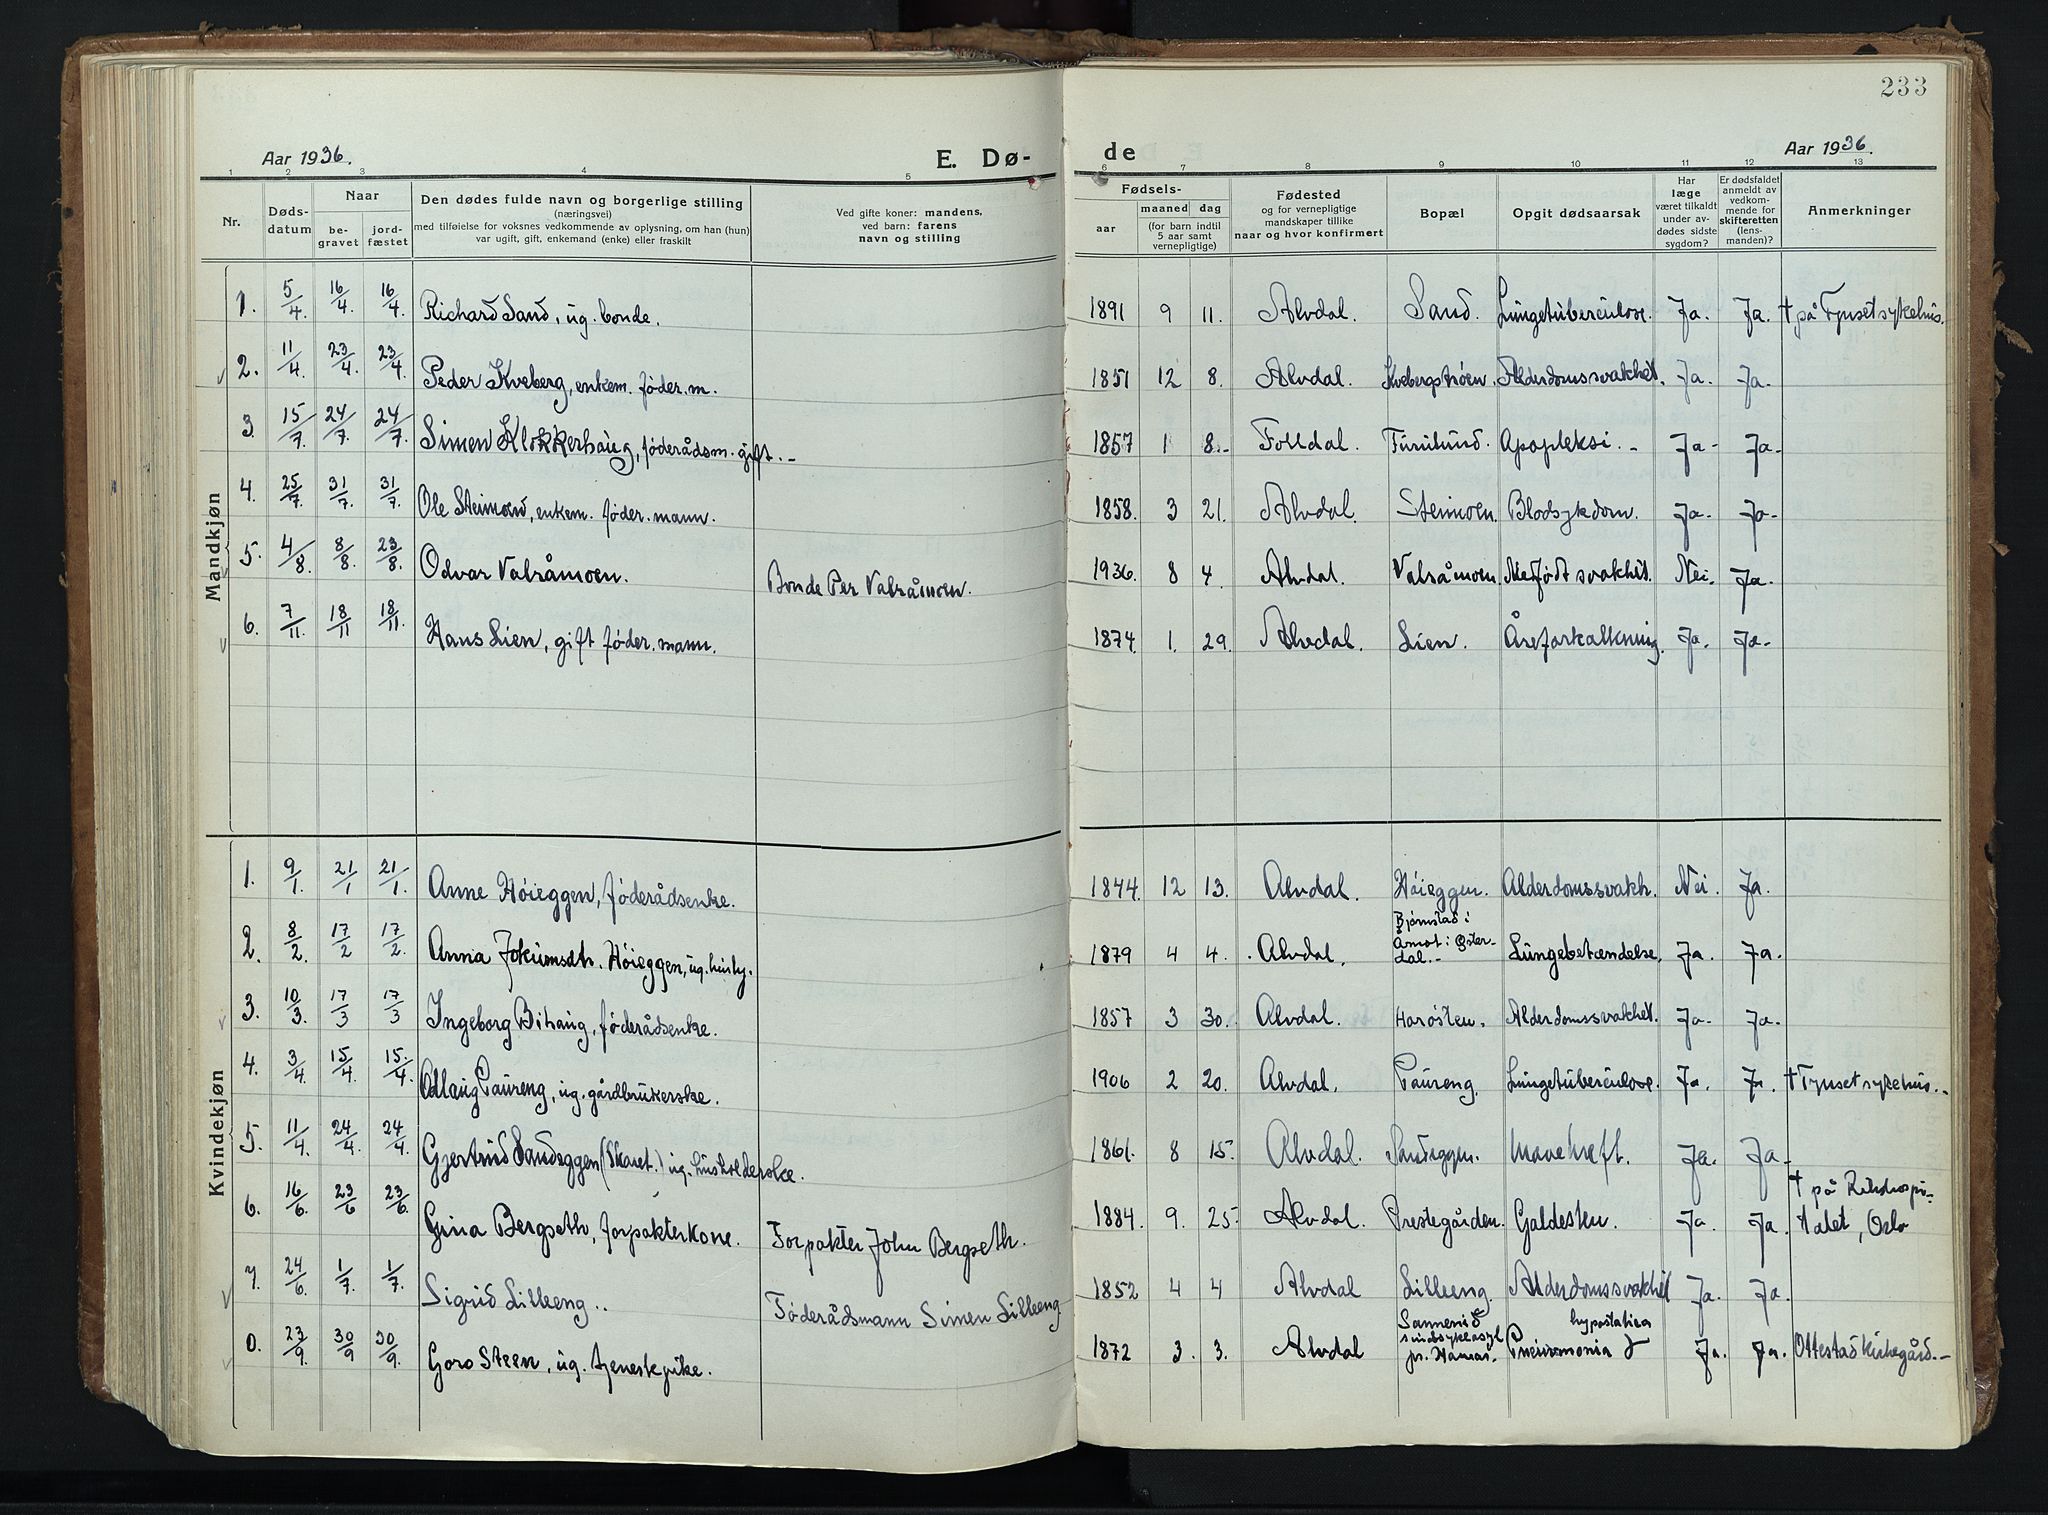 233
Aar 1936.
E. Dø-
de
Aar 1936.
1 2 3 4 5 6 7 8 9 10 11 12 13
Nr.
Døds-
datum
Naar
be-
gravet
jord-
fæstet
Den dødes fulde navn og borgerlige stilling
(næringsvei)
med tilføielse for voksnes vedkommende av oplysning, om han (hun)
var ugift, gift, enkemand (enke) eller fraskilt
Ved gifte koner: mandens,
ved barn: farens
navn og stilling
Fødsels-
aar
maaned
dag
(for barn indtil
5 aar samt
vernepligtige)
Fødested
og for vernepligtige
mandskaper tillike
naar og hvor konfirmert
Bopæl
Opgit dødsaarsak
Har
læge
været tilkaldt
under av-
dødes sidste
sygdom?
Er dødsfaldet
anmeldt av
vedkom-
mende for
skifteretten
(lens-
manden)?
Anmerkninger
Mandkjøn
1. 5/4. 16/4. 16/4. Richard Sand, ug. bonde. 1891 9 11. Alvdal. Sand. Lungetuberculose. Ja. Ja. † på Tynset sykehus.
2. 11/4. 23/4. 23/4. Peder Kveberg, enkem. føder.m. 1851 12 8. Alvdal. Kvebergstrøen. Alderdomssvakhet. Ja. Ja.
3. 15/7. 24/7. 24/7. Simen Klokkerhaug, føderådsm. gift. - 1857 1 8.- Folldal. Furulund. Apopleksi. - Ja- Ja-
4. 25/7. 31/7. 31/7. Ole Steimoen, enkem. føder. mann. 1858. 3 21. Alvdal. Steimoen. Blodsykdom. Ja- Ja-
5. 4/8. 8/8. 23/8. Odvar Valråmoen. Bonde Per Valråmoen. 1936. 8 4. Alvdal. Valråmoen. Medfødt svakhet. Nei. Ja.
6. 7/11. 18/11 18/11. Hans Lien, gift føder. mann. 1874. 1. 29. Alvdal. Lien. Åreforkalkning. Ja- Ja-
Kvindekjøn
1. 9/1. 21/1 21/1. Anne Höieggen, føderådsenke. 1844. 12 13. Alvdal. Höieggen. Alderdomssvakh. Nei. Ja.
2. 8/2. 17/2 17/2. Anna Jokumsdtr. Höieggen, ug. 1879 4 4. Alvdal. Bjørnstad i
Åmot i Øster-
dal. - Lungebetændelse. Ja. Ja.
3. 10/3. 17/3 17/3 Ingeborg Bihaug, føderådsenke. 1857 3 30. Alvdal. Harösten. Alderdomssvakhet. Ja. Ja.
4. 3/4. 15/4. 15/4. Odlaug Paureng, ug. gårdbrukerske. 1906 2 20. Alvdal. Paureng. Lungetuberculose. Ja. Ja. † Tynset sykehus. -
5. 11/4. 24/4. 24/4. Gjertrud Sandeggen (Skaret.) ug. husholderske. 1861. 8 15. Alvdal. Sandeggen. Mavekreft. Ja. Ja-
6. 16/6. 23/6 23/6. Gina Bergseth, forpakterkone. Forpakter John Bergseth. 1884. 9. 25. Alvdal. Prestegården. Galdesten. Ja. Ja. † på Rikshospi-
talet, Oslo
7. 24/6. 1/7. 1/7. Sigrid Lilleeng.. Føderådsmann Simen Lilleeng 1852 4 4 Alvdal Lilleeng. Alderdomssvakhet Ja. Ja.
23/9. 30/9 30/9. Goro Steen, ug. tjenestepike. 1872 3. 3. Alvdal Sannerud
sindsykeasyl
pr. Hamar. hypostatica
Pneumonia Ja. Ja. Ottestad kirkegård. -